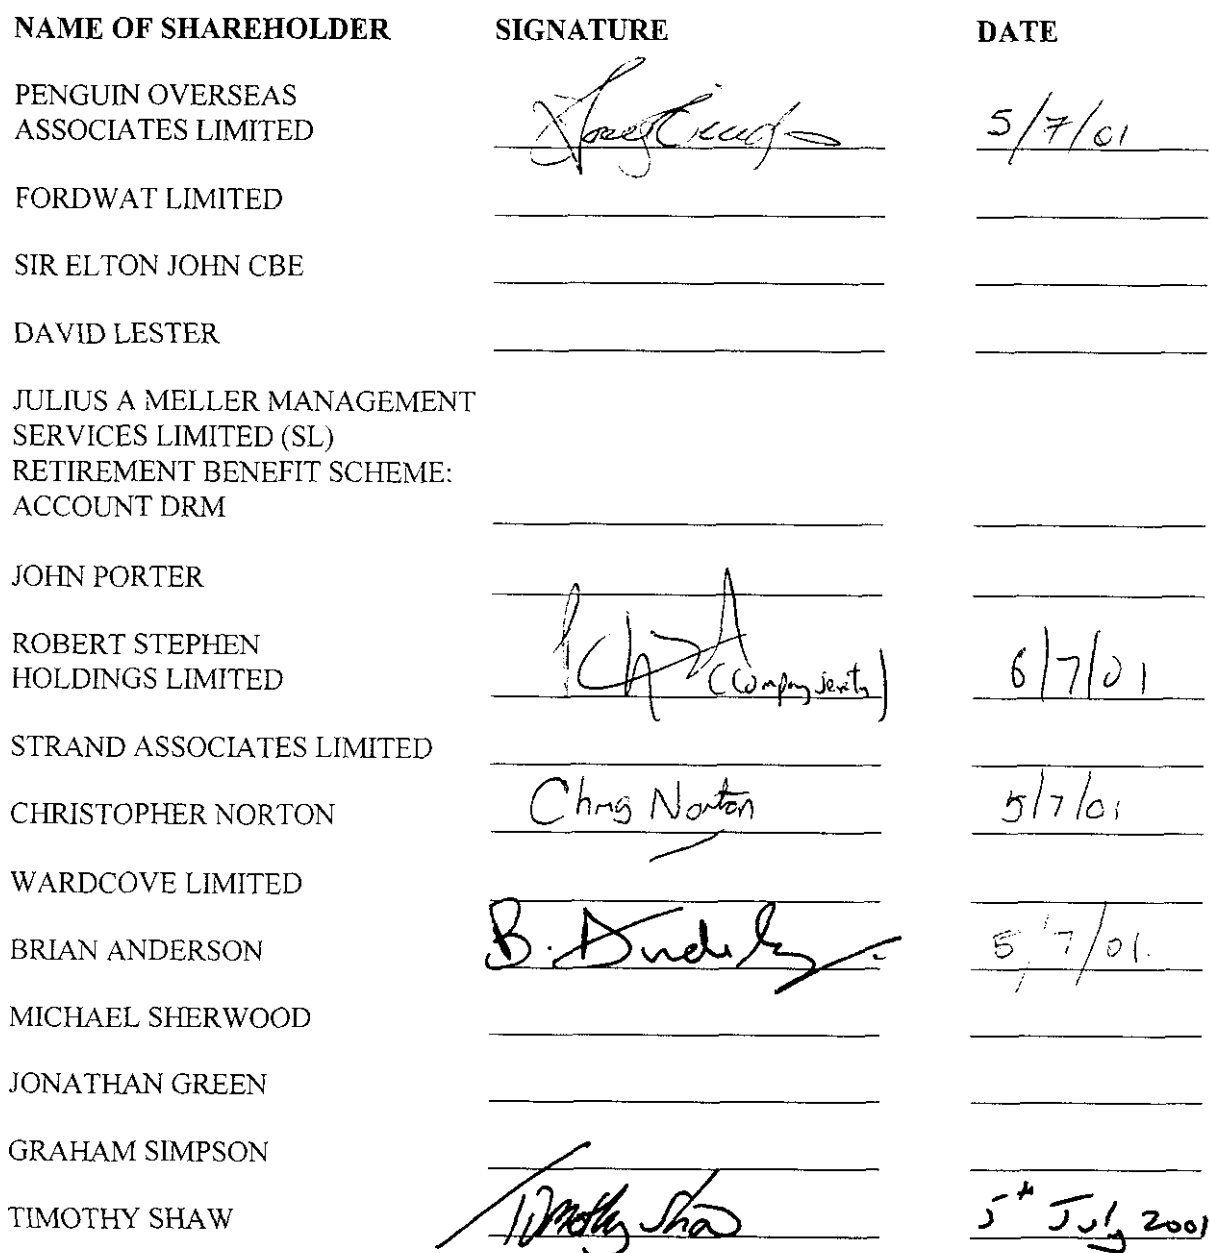 NAME OF SHAREHOLDER SIGNATURE DATE
PENGUIN OVERSEAS
ASSOCIATES LIMITED 5/7/01
FORDWAT LIMITED
SIR ELTON JOHN CBE
DAVID LESTER
JULIUS A MELLER MANAGEMENT
SERVICES LIMITED (SL)
RETIREMENT BENEFIT SCHEME:
ACCOUNT DRM
JOHN PORTER
ROBERT STEPHEN
HOLDINGS LIMITED (Company 6/7/01
STRAND ASSOCIATES LIMITED
CHRISTOPHER NORTON Chris Norton 5/7/01
WARDCOVE LIMITED
BRIAN ANDERSON B. 5/7/01.
MICHAEL SHERWOOD
JONATHAN GREEN
GRAHAM SIMPSON
TIMOTHY SHAW Timothy Shaw 5th July 2001